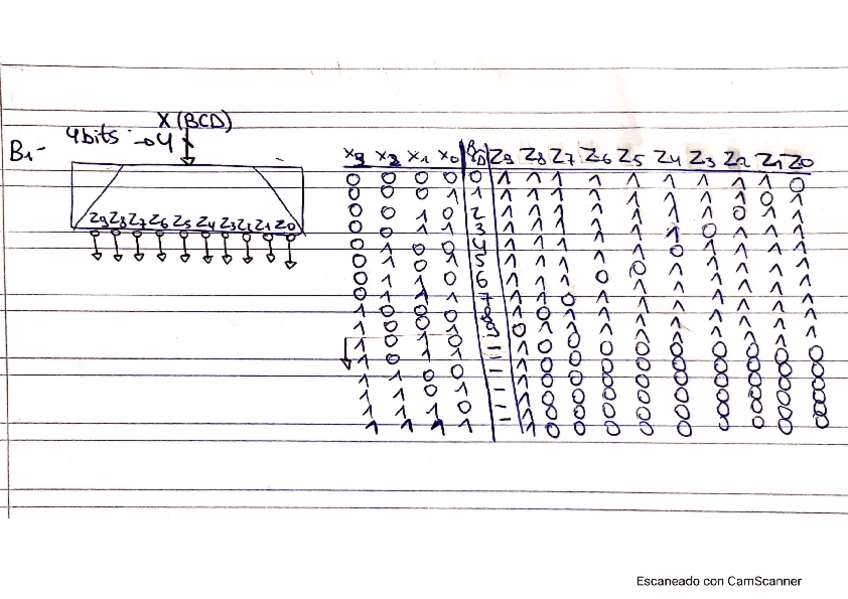 X (BCD)
4bits →4
B1-
Z9 Z8 Z7 Z6 Z5 Z4 Z3 Z2 Z1 Z0
X3 X2 X1 X0 Z9 Z8 Z7 Z6 Z5 Z4 Z3 Z2 Z1 Z0
0 0 0 0 0 1 1 1 1 1 1 1 1 1 0
0 0 0 1 1 1 1 1 1 1 1 1 1 0 1
0 0 1 0 2 1 1 1 1 1 1 1 0 1 1
0 0 1 1 3 1 1 1 1 1 1 0 1 1 1
0 1 0 0 4 1 1 1 1 1 0 1 1 1 1
0 1 0 1 5 1 1 1 1 0 1 1 1 1 1
0 1 1 0 6 1 1 1 0 1 1 1 1 1 1
0 1 1 1 7 1 1 0 1 1 1 1 1 1 1
1 0 0 0 8 1 0 1 1 1 1 1 1 1 1
1 0 0 1 9 0 1 1 1 1 1 1 1 1 1
1 0 1 0 - 1 0 0 0 0 0 0 0 0
1 0 1 1 - 1 0 0 0 0 0 0 0 0
1 1 0 0 - 1 0 0 0 0 0 0 0 0
1 1 0 1 - 1 0 0 0 0 0 0 0 0
1 1 1 0 - 1 0 0 0 0 0 0 0 0
1 1 1 1 1 0 0 0 0 0 0 0 0
Escaneado con CamScanner